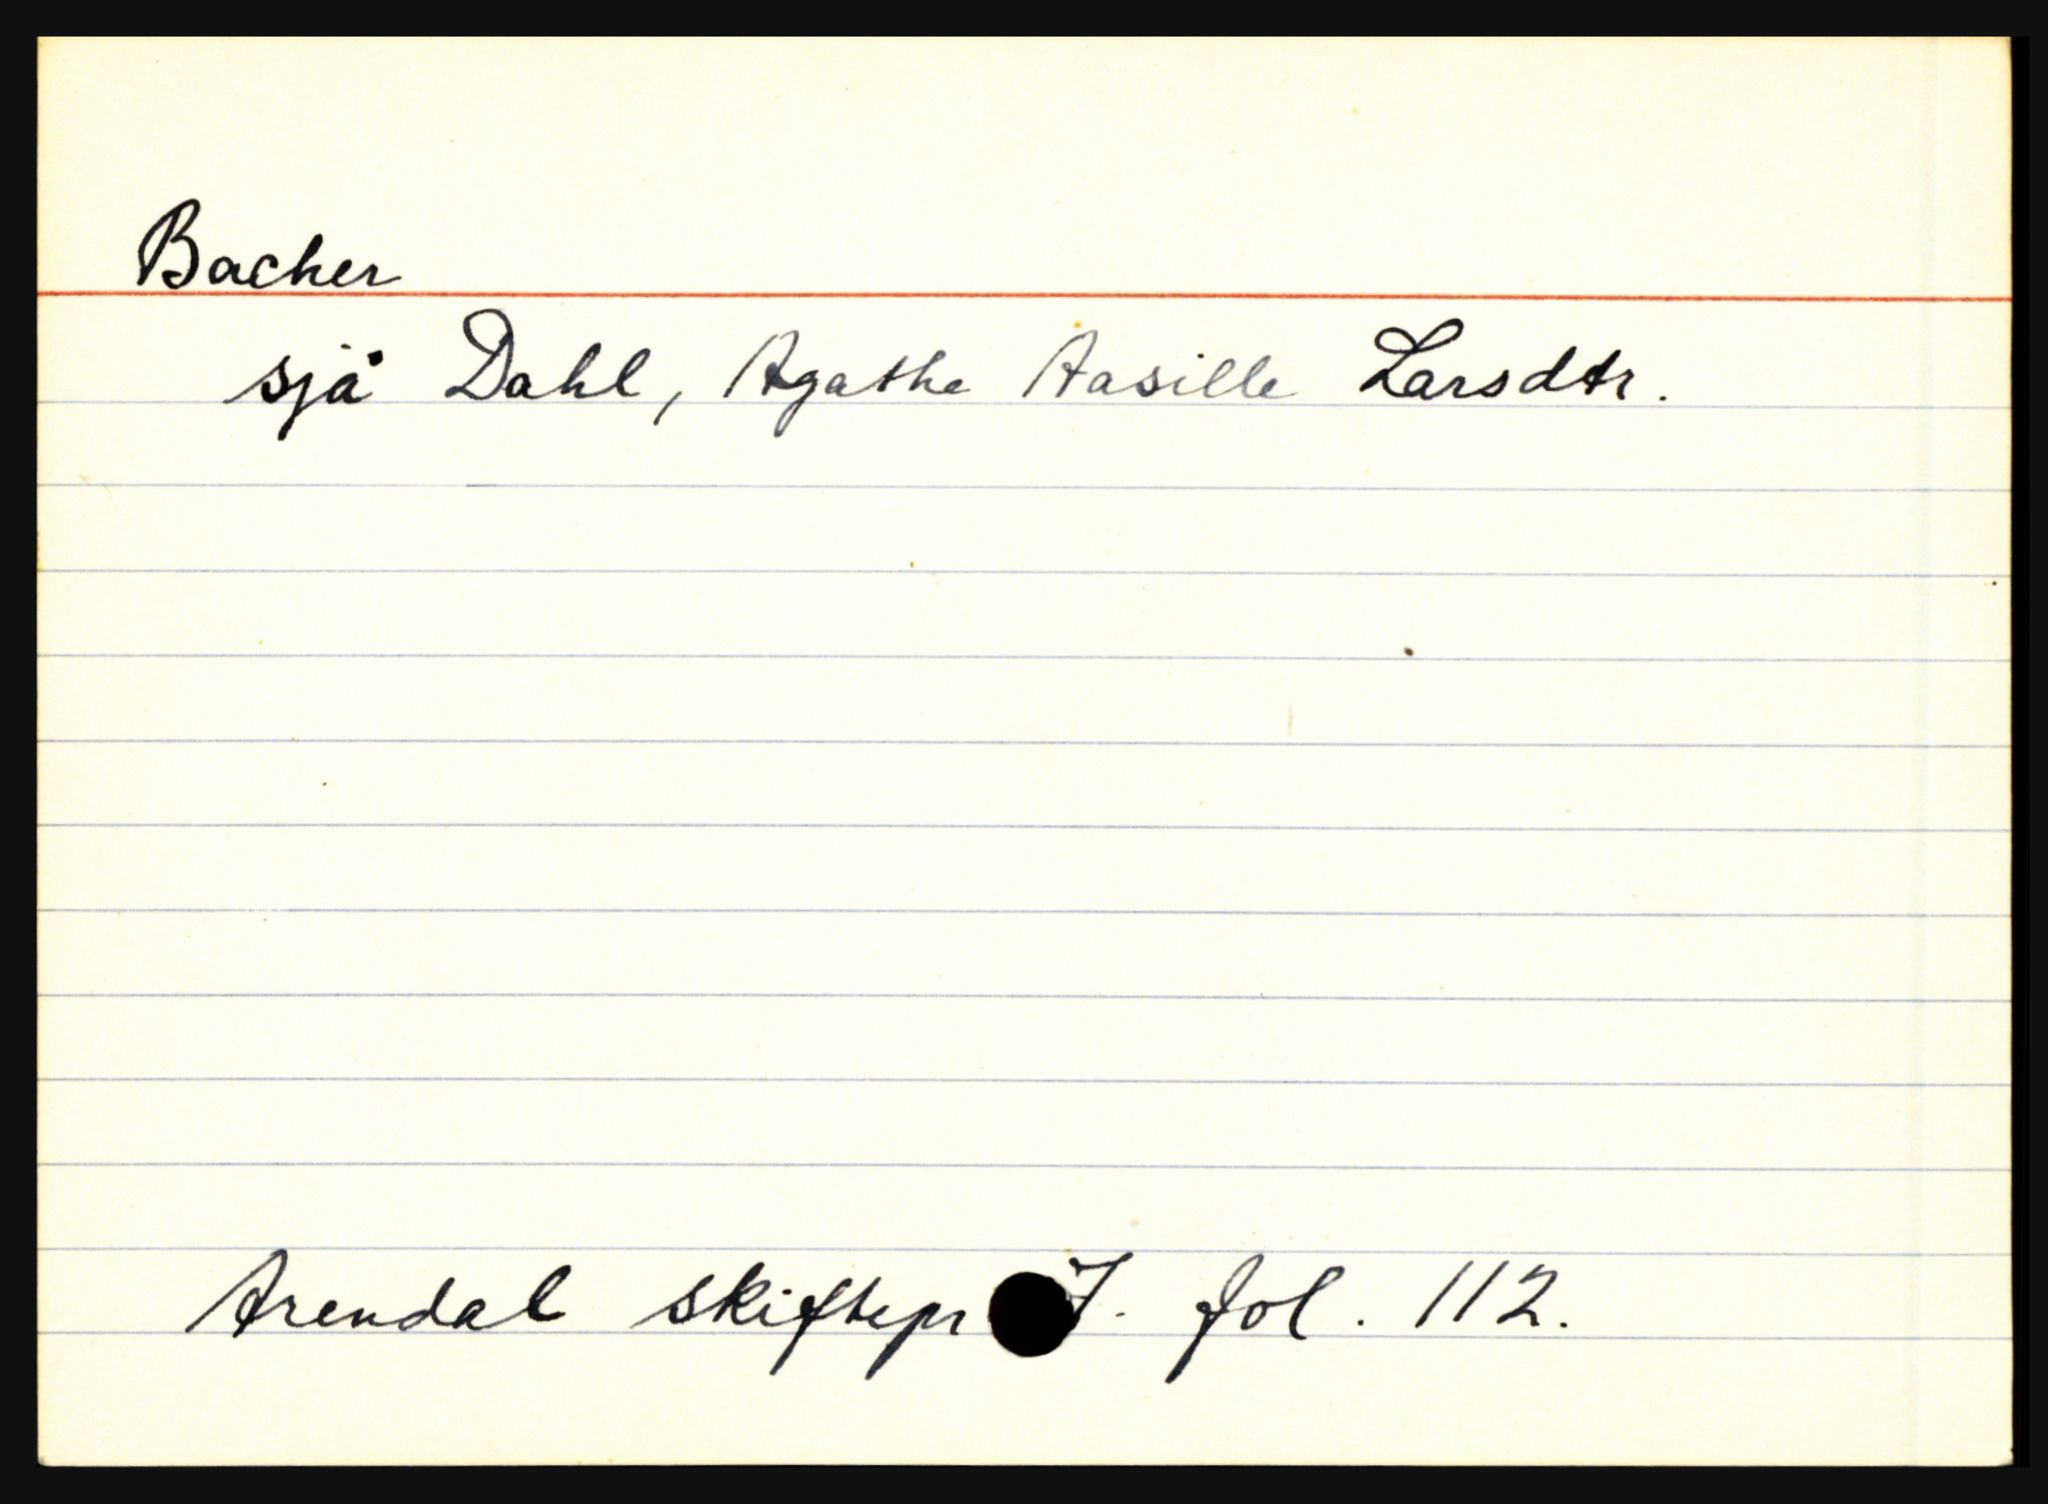 Bacher
sjå Dahl, Agathe Aasille Larsdtr.
Arendal skiftepr 7. fol. 112.